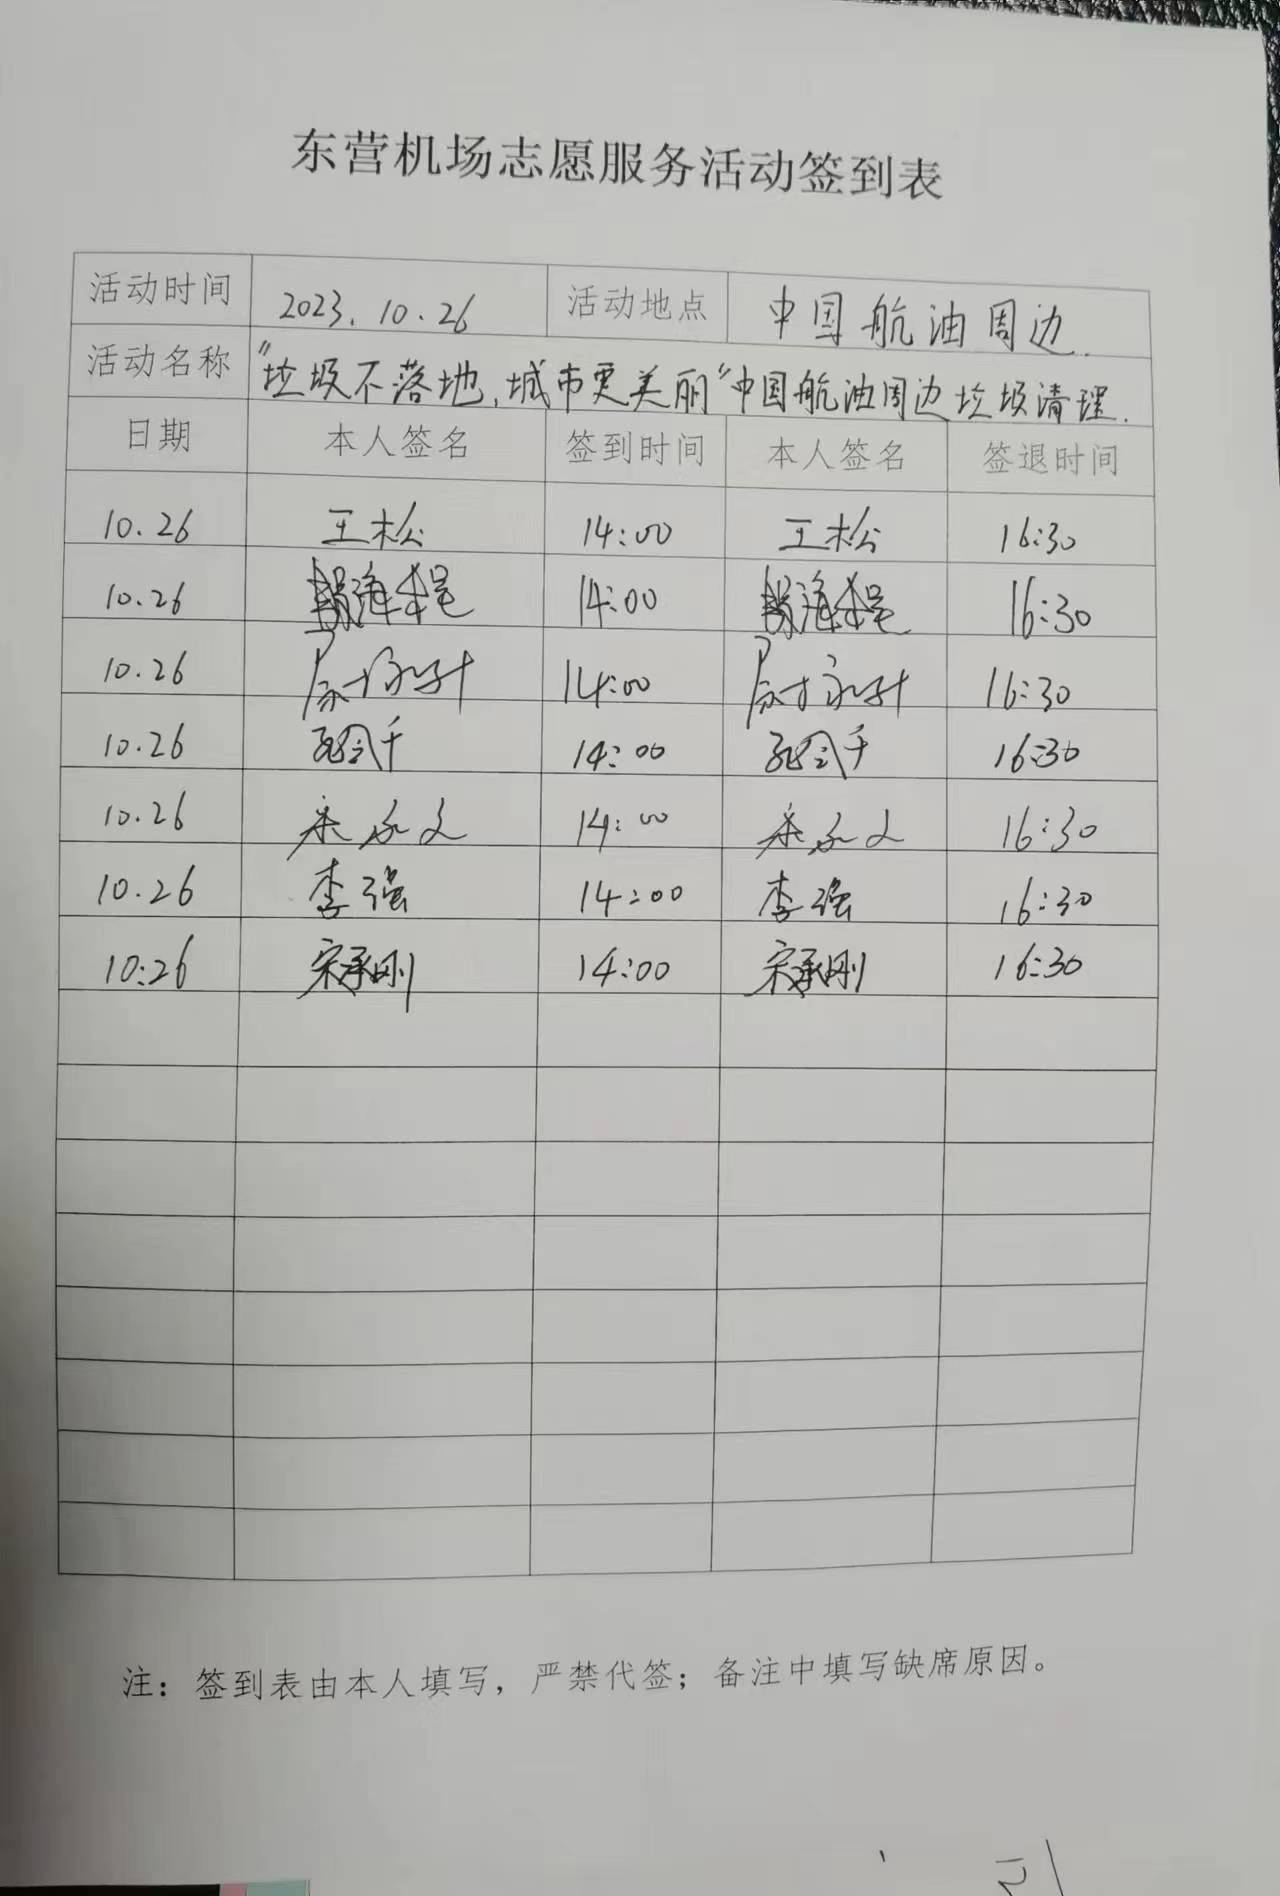 东营机场志愿服务活动签到表
活动时间 2023.10.26 活动地点 中国航油周边.
活动名称 "垃圾不落地,城市更美丽"中国航油周边垃圾清理.
日期 本人签名 签到时间 本人签名 签退时间
10.26 王松 14:00 王松 16:30
10.26 14:00 16:30
10.26 14:00 16:30
10.26 14:00 16:30
10.26 14:00 16:30
10.26 李强 14:00 李强 16:30
10:26 宋承刚 14:00 宋承刚 16:30
注：签到表由本人填写，严禁代签；备注中填写缺席原因。